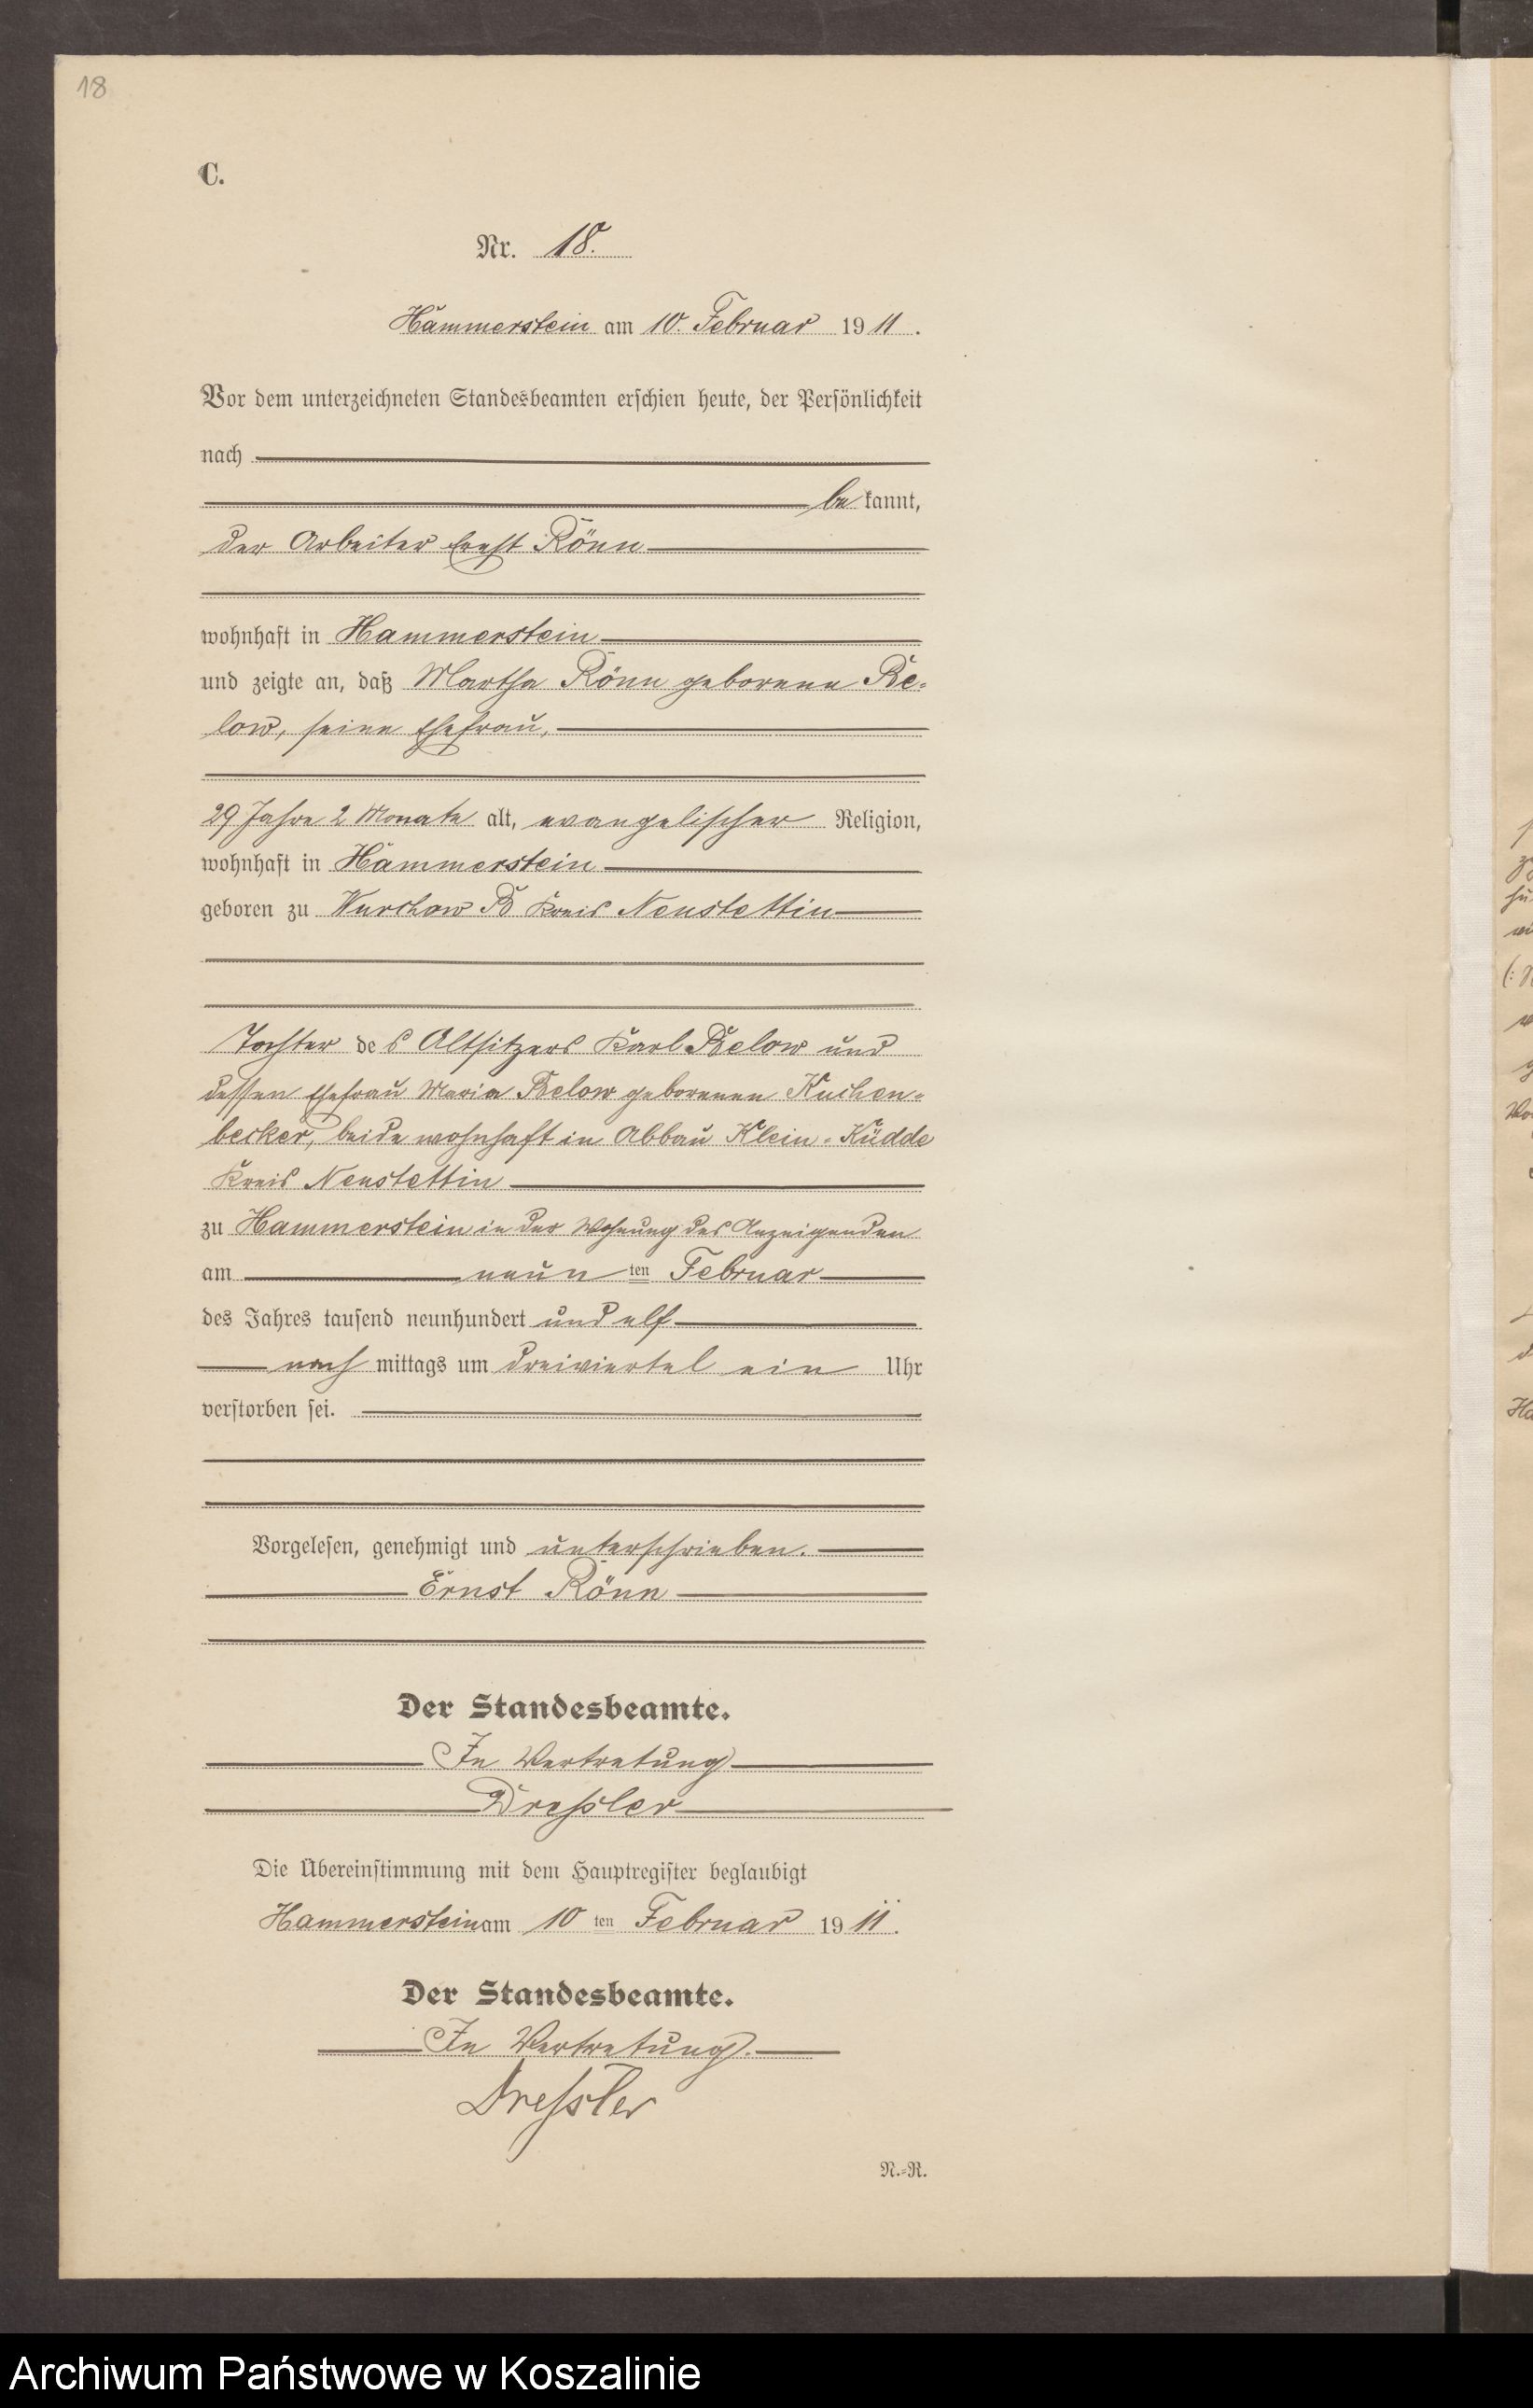 18
C.
Nr. 18.
Hammerstein am 10. Februar 1911.
Vor dem unterzeichneten Standesbeamten erschien heute, der Persönlichkeit
nach
bekannt,
der Arbeiter Ernst Rönn
wohnhaft in Hammerstein
und zeigte an, daß Martha Rönn geborene Be-
low, seine Ehefrau,
29 Jahre 2 Monate alt, evangelischer Religion,
wohnhaft in Hammerstein
geboren zu Wurchow B Kreis Neustettin
Tochter des Altsitzers Karl Below und
dessen Ehefrau Maria Below geborenen Kuchen-
becker, beide wohnhaft in Abbau Klein-Küdde
Kreis Neustettin
zu Hammerstein in der Wohnung des Anzeigenden
am neunten Februar
des Jahres tausend neunhundert und elf
nachmittags um dreiviertel ein Uhr
verstorben sei.
Vorgelesen, genehmigt und unterschrieben.
Ernst Rönn
Der Standesbeamte.
In Vertretung
Dressler
Die Übereinstimmung mit dem Hauptregister beglaubigt
Hammerstein am 10ten Februar 1911.
Der Standesbeamte.
In Vertretung.
Dressler
N.-R.
Archiwum Państwowe w Koszalinie